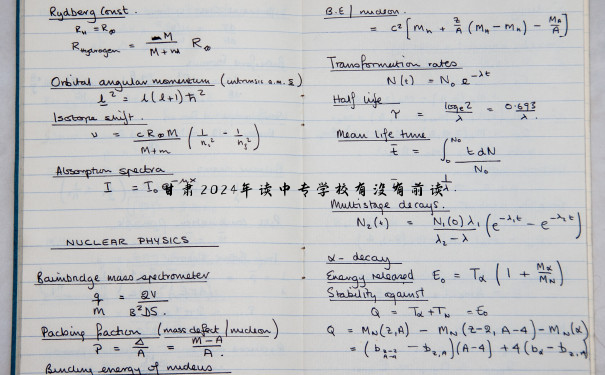 Rydberg Const.
R_H = R_∞
R_Hydrogen = M / (M + m) R_∞
Orbital angular momentum (intrinsic a.m. s)
l² = l(l+1)ħ²
Isotope shift.
ν = cR_∞M / (M+m) (1/n₁² - 1/n₂²)
Absorption spectra
I = I₀ e^-μx
NUCLEAR PHYSICS
Bainbridge mass spectrometer
q/m = 2V / B²DS.
Packing fraction (mass defect / nucleon)
P = Δ/A = (M-A)/A.
Binding energy of nucleus
B.E / nucleon.
= c² [M_n + Z/A (M_H - M_n) - M_A/A]
Transformation rates
N(t) = N₀ e^-λt
Half life
τ = log_e 2 / λ = 0.693 / λ.
Mean life time
t̄ = ∫₀^N₀ t dN / N₀
= 1/λ.
甘肃2024年读中专学校有没有前读
Multistage decays.
N₂(t) = N₁(0) λ₁ / (λ₂ - λ) (e^-λ₁t - e^-λ₂t)
α - decay
Energy released E₀ = T_α (1 + M_α/M_N)
Stability against
Q = T_α + T_N = E₀
Q = M_N(Z,A) - M_N(Z-2, A-4) - M_N(α)
= (b_A-4 - b_Z,A)(A-4) + 4(b_α - b_Z,A)